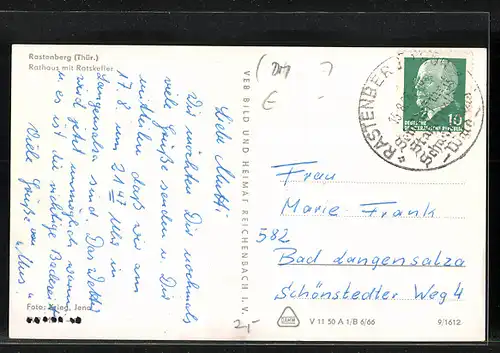 Rastenberg (Thür.)
Rathaus mit Ratskeller
Liebe Mutti!
Wir möchten Dir nochmals
viele Grüße senden u. Dir
mitteilen daß wir am
17.8 um 21 47 Uhr in
Langensalza sind. Das Wetter
wird jetzt unmöglich warm
u es ist die richtige Badezeit
Viele Grüße von
Foto: Kried, Jena
VEB BILD UND HEIMAT REICHENBACH I. V.
2,-
RASTENBERG
10
DEUTSCHE
DEMOKRATISCHE REPUBLIK
Frau
Marie Frank
582
Bad Langensalza
Schönstedter Weg 4
V 11 50 A 1/B 6/66
9/1612